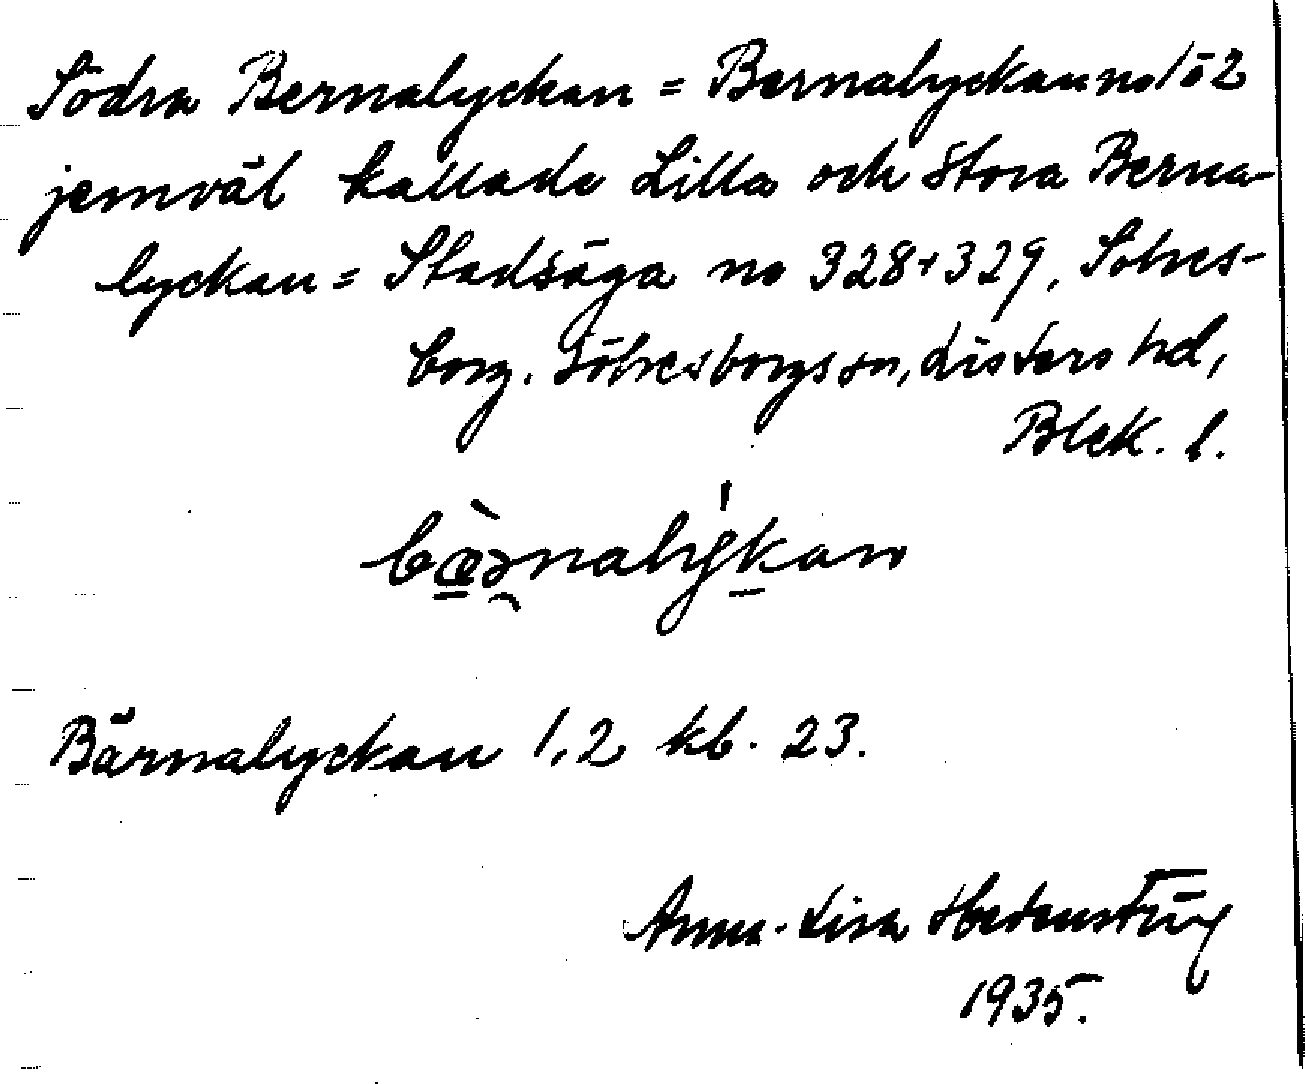 Södra Bernalyckan = Bernalyckan no 1 o 2
jemväl kallade Lilla och Stora Berna-
lyckan = Stadsäga no 328+329, Sölves-
borg. Sölvesborgs sn, Listers hd,
Blek. l.
Bärnalyckan 1,2 kb. 23.
Anna-Lisa
1935.